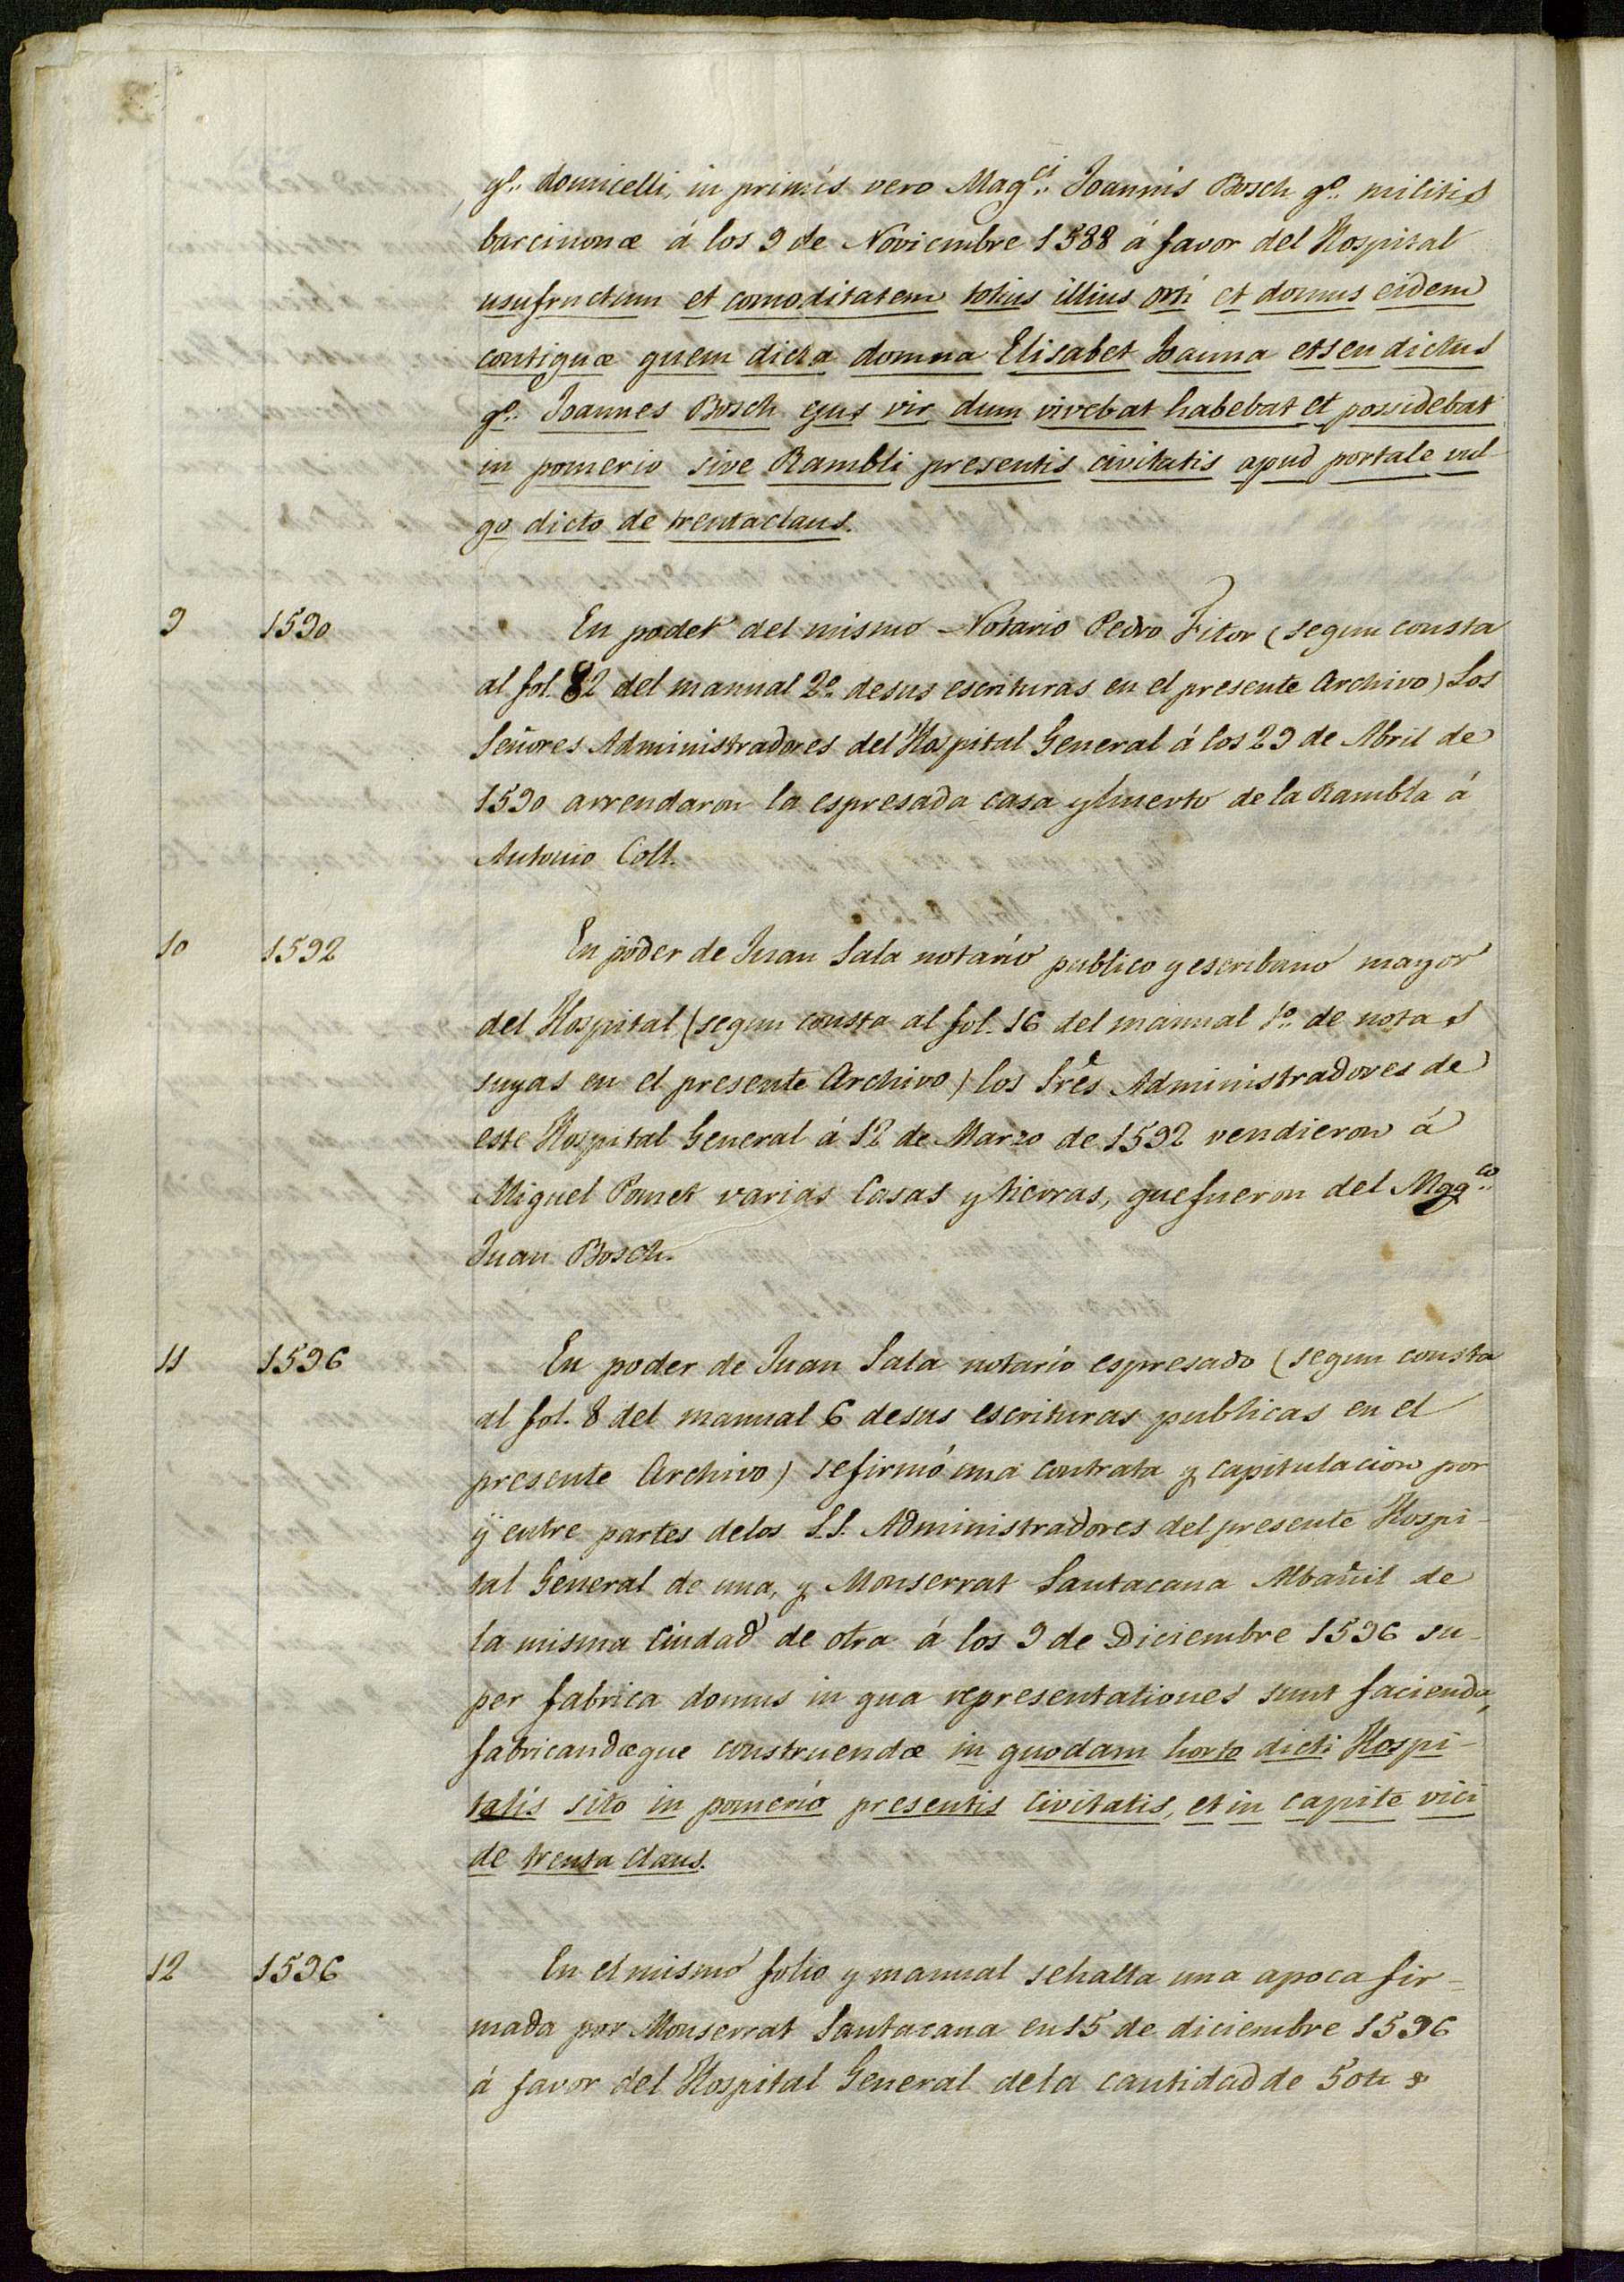 qº. domicelli, in primis vero Mag.ci Joannis Bosch qº. militis
barcinonæ á los 9 de Noviembre 1588 á favor del Hospital
usufructum et comoditatem totius illius orti et domus eidem
contiguæ quem dicta domna Elisabet Joanna etseu dictus
qº. Joannes Bosch ejus vir dum vivebat habebat et possidebat
in pomerio sive Rambli presentis civitatis apud portale vul-
go dicto de trentaclaus.
9 1590 En poder del mismo Notario Pedro Fitor (segun consta
al fol. 82 del manual 2º. desus escrituras en el presente Archivo) Los
Señores Administradores del Hospital General á los 29 de Abril de
1590 arrendaron la espresada casa y huerto de la Rambla á
Antonio Coll.
10 1592 En poder de Juan Sala notario publico y escribano mayor
del Hospital (segun consta al fol. 16 del manual 1º. de notas
suyas en el presente Archivo) los Sres Administradores de
este Hospital General á 12 de Marzo de 1592 vendieron á
Miguel Pomet varias Casas y tierras, que fueron del Mag.co
Juan Bosch.
11 1596 En poder de Juan Sala notario espresado (segun consta
al fol. 8 del manual 6 desus escrituras publicas en el
presente Archivo) sefirmó una contrata y capitulacion por
ÿ entre partes delos S.S. Administradores del presente Hospi-
tal General de una, y Monserrat Santacana Albañil de
la misma Ciudad de otra á los 9 de Diciembre 1596 su-
per fabrica domus in qua representationes sunt facienda,
fabricandæque construendæ in quodam horto dicti Hospi-
talis sito in pomerio presentis Civitatis, et in capite vici
de trenta claus.
12 1596 En el mismo folio y manual sehalla una apoca fir-
mada por Monserrat Santacana en 15 de diciembre 1596
á favor del Hospital General dela cantidad de